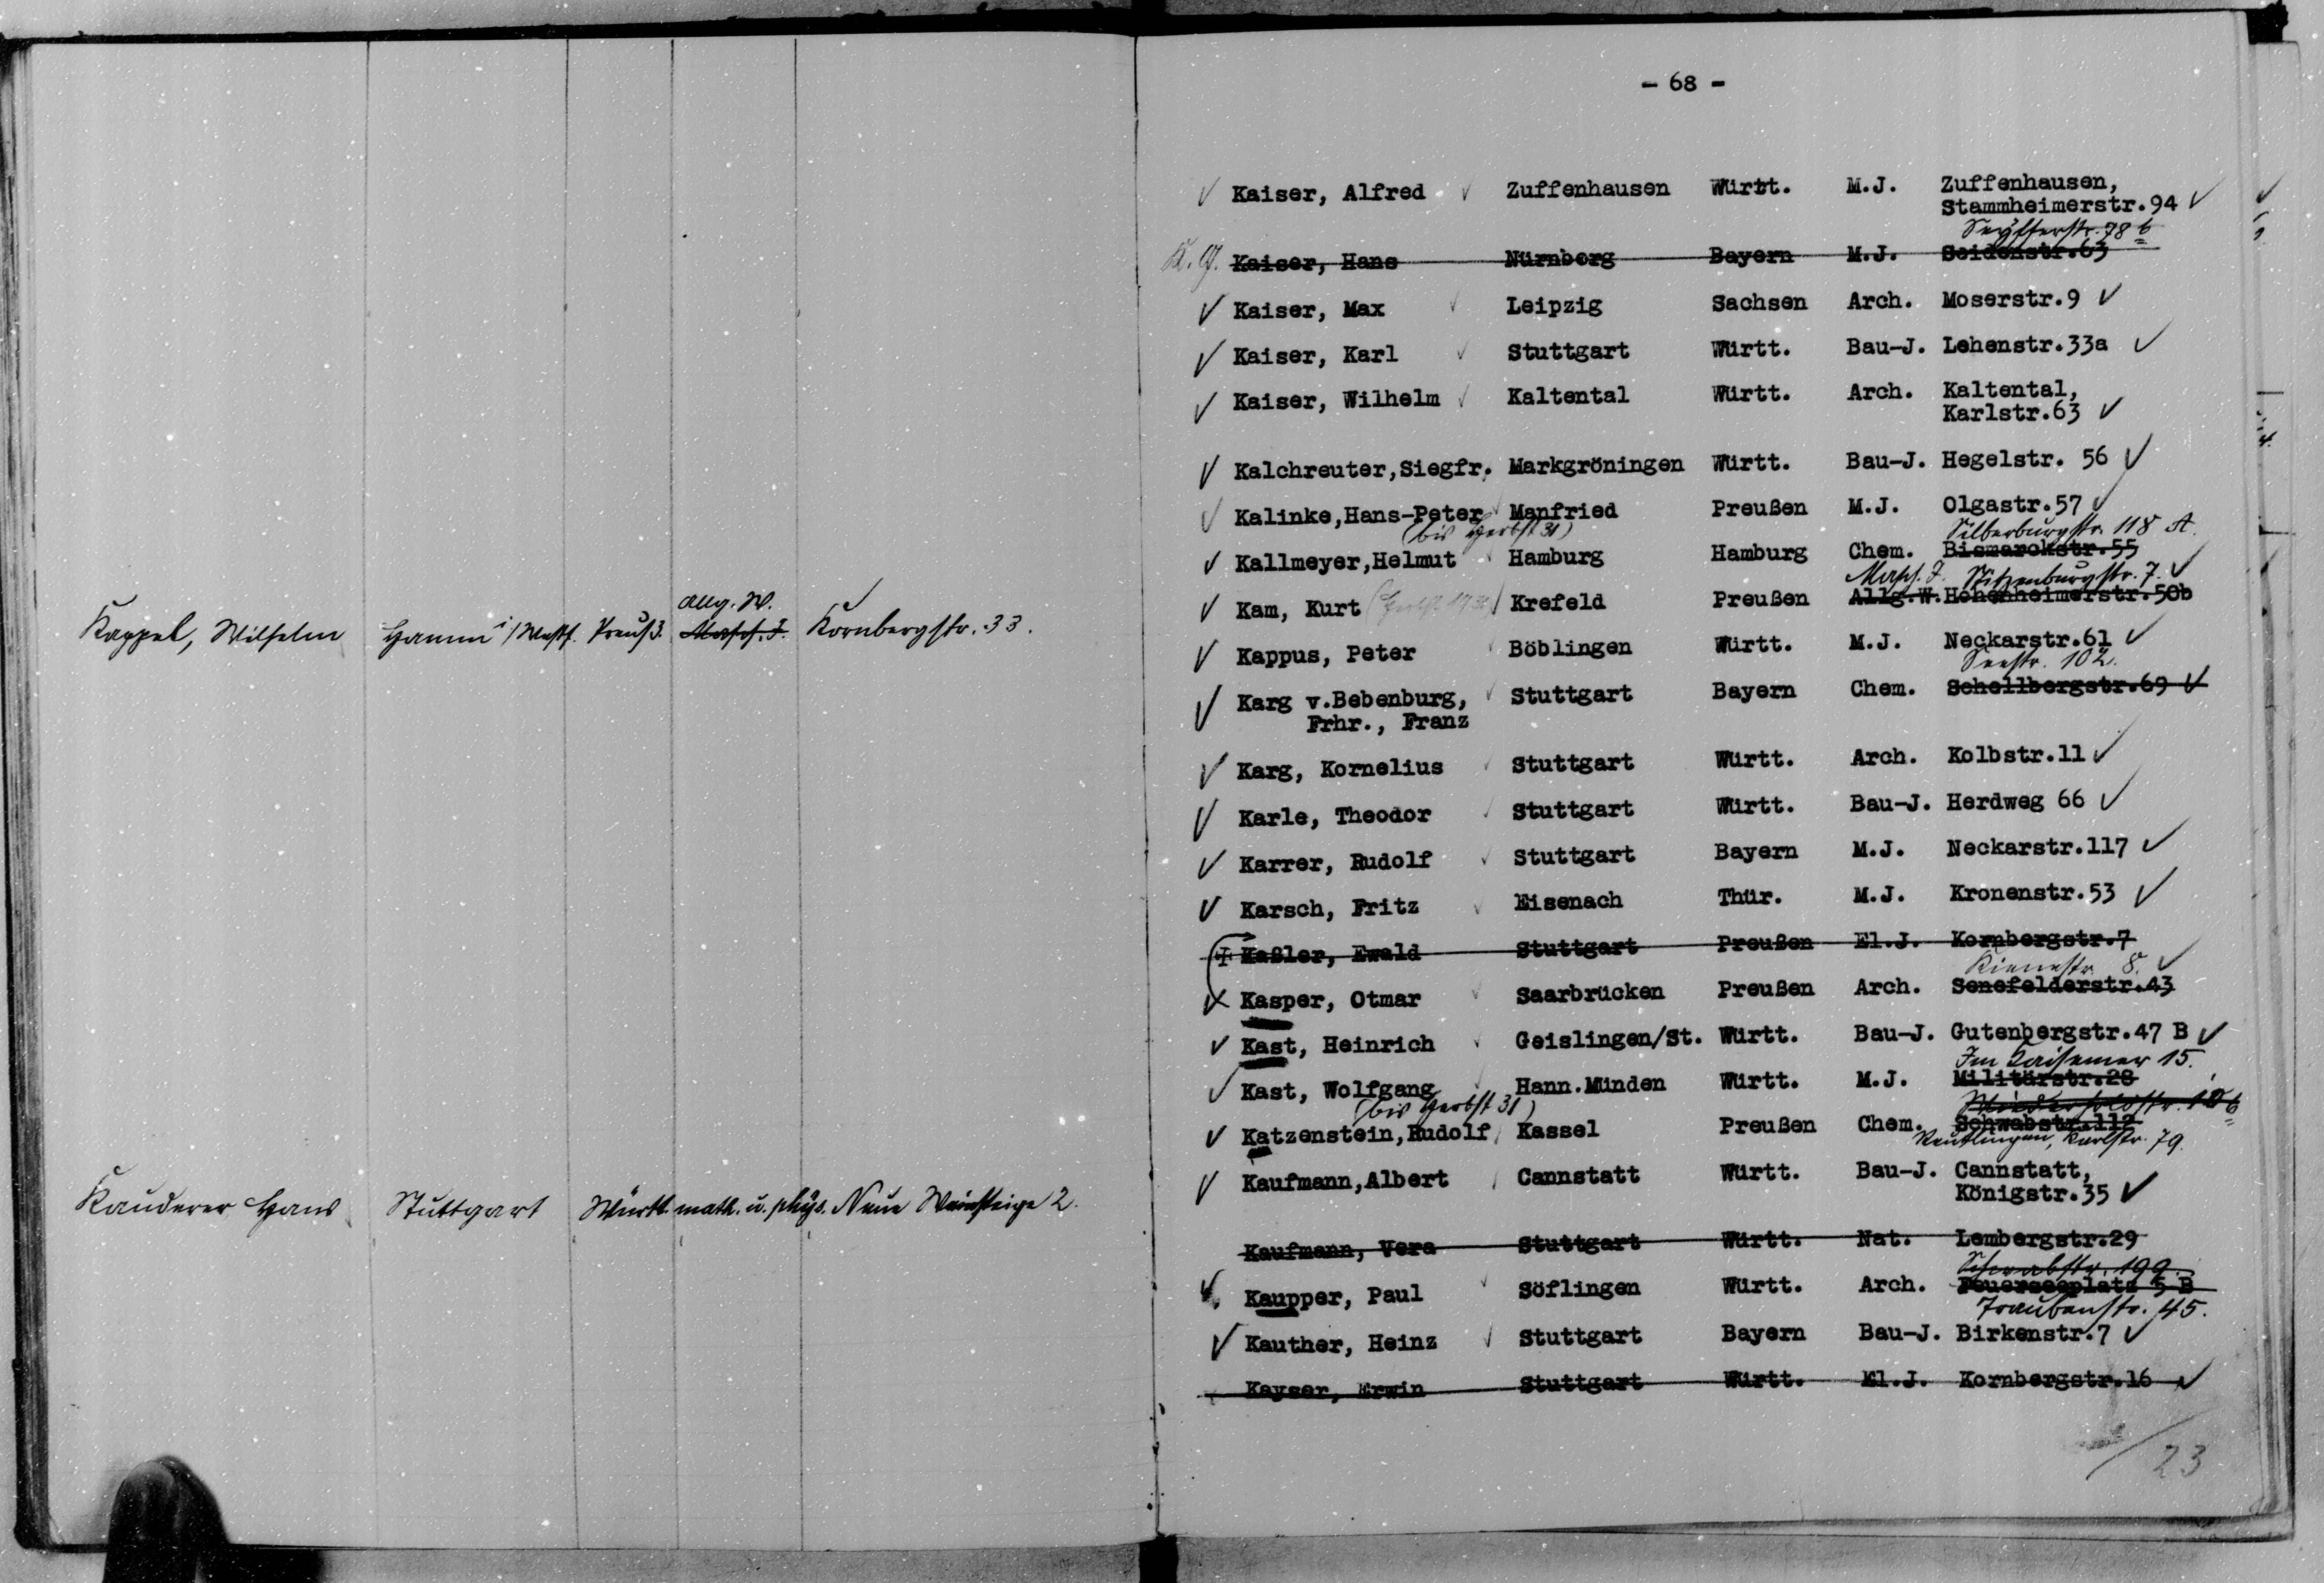 Allg. W.
Kappel, Wilhelm Hamm i/Westf. Preuß. Masch. I. Kornbergstr. 33.
Kauderer Hans Stuttgart Württ. math. u. phys. Neue Weinsteige 2.
- 68 -
Kaiser, Alfred Zuffenhausen Württ. M.J. Zuffenhausen,
Stammheimerstr.94
Seyfferstr. 78 b
K. G. Kaiser, Hans Nürnberg Bayern M.J. Seidenstr.63
Kaiser, Max Leipzig Sachsen Arch. Moserstr.9
Kaiser, Karl Stuttgart Württ. Bau-J. Lehenstr.33a
Kaiser, Wilhelm Kaltental Württ. Arch. Kaltental,
Karlstr.63
Kalchreuter,Siegfr. Markgröningen Württ. Bau-J. Hegelstr. 56
Kalinke,Hans-Peter Manfried Preußen M.J. Olgastr.57
(bis Herbst 31) Silberburgstr. 118 A.
Kallmeyer,Helmut Hamburg Hamburg Chem. Bismarckstr.55
Masch. I. Stitzenburgstr. 7.
Kam, Kurt Krefeld Preußen Allg.W. Hohenheimerstr.50b
Kappus, Peter Böblingen Württ. M.J. Neckarstr.61
Seestr. 102.
Karg v.Bebenburg, Stuttgart Bayern Chem. Schellbergstr.69
Frhr., Franz
Karg, Kornelius Stuttgart Württ. Arch. Kolbstr.11
Karle, Theodor Stuttgart Württ. Bau-J. Herdweg 66
Karrer, Rudolf Stuttgart Bayern M.J. Neckarstr.117
Karsch, Fritz Eisenach Thür. M.J. Kronenstr.53
Kaßler, Ewald Stuttgart Preußen El.J. Kornbergstr.7
Kienestr. 8.
Kasper, Otmar Saarbrücken Preußen Arch. Senefelderstr.43
Kast, Heinrich Geislingen/St. Württ. Bau-J. Gutenbergstr.47 B
Im Kaisemer 15.
Kast, Wolfgang Hann.Münden Württ. M.J. Militärstr.28
(bis Herbst 31)
Katzenstein,Rudolf Kassel Preußen Chem. Schwabstr.112
Reutlingen, Karlstr. 79.
Kaufmann,Albert Cannstatt Württ. Bau-J. Cannstatt,
Königstr.35
Kaufmann, Vera Stuttgart Württ. Nat. Lembergstr.29
Schwabstr. 199
Kaupper, Paul Söflingen Württ. Arch. Feuerseeplatz 5 B
Traubenstr. 45.
Kauther, Heinz Stuttgart Bayern Bau-J. Birkenstr.7
Kayser, Erwin Stuttgart Württ. El.J. Kornbergstr.16
23